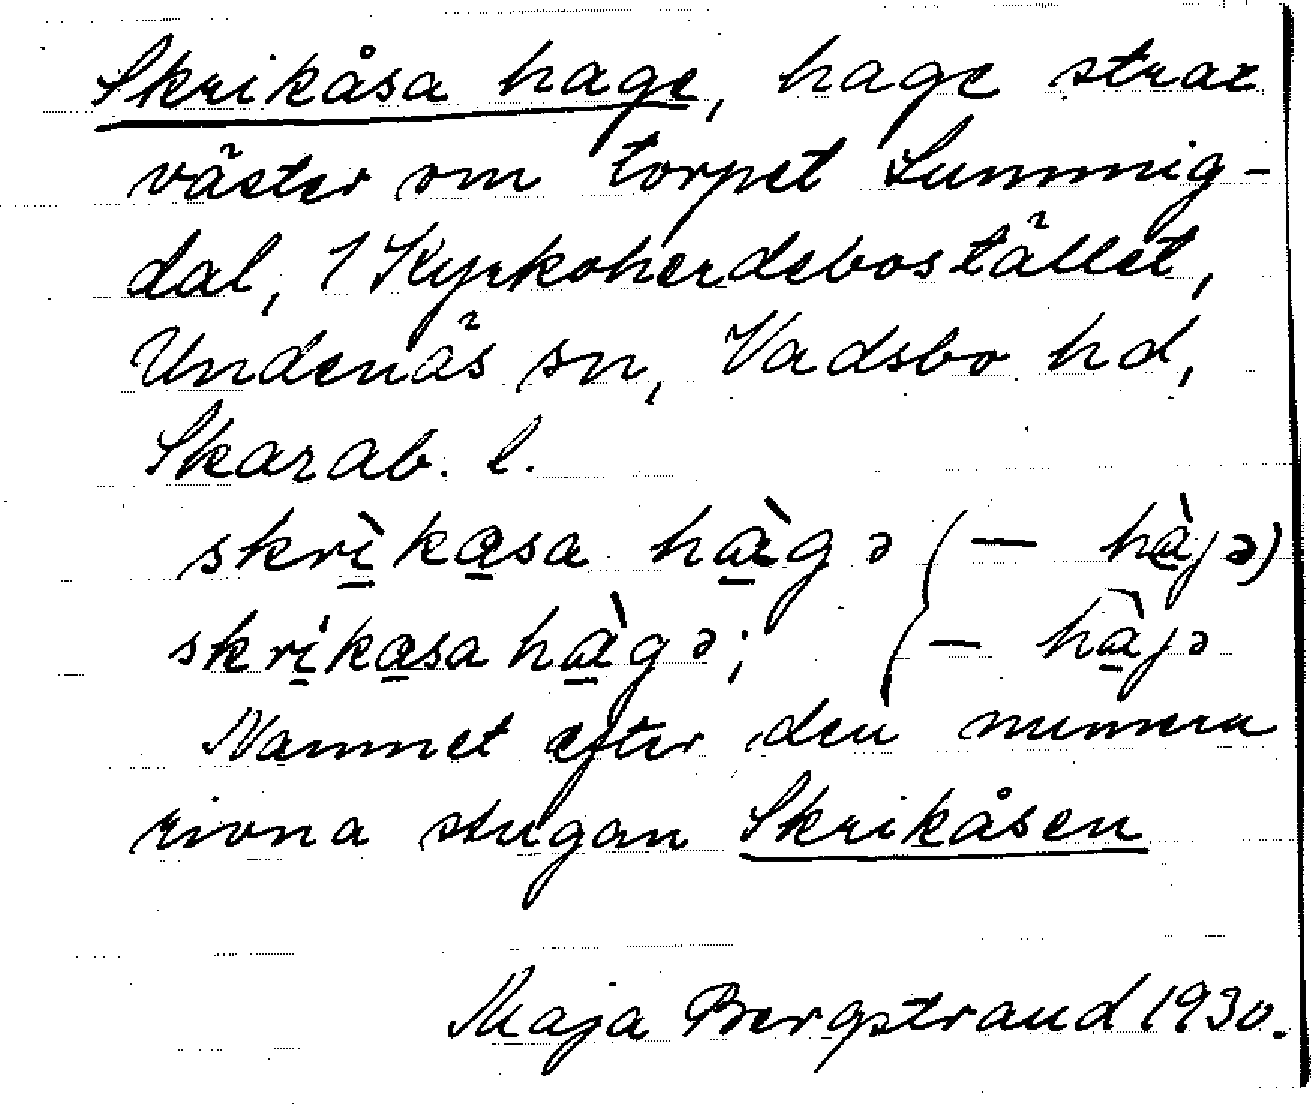 Skrikåsa hage, hage strax
väster om torpet Lummig-
dal, 1 Kyrkoherdebostället,
Undenäs sn, Vadsbo hd,
Skarab. l.
skrìkasa hàgə (— hàjə)
skríkasa hàgə; — hàjə
Namnet efter den numera
rivna stugan Skrikåsen
Maja Bergstrand 1930.